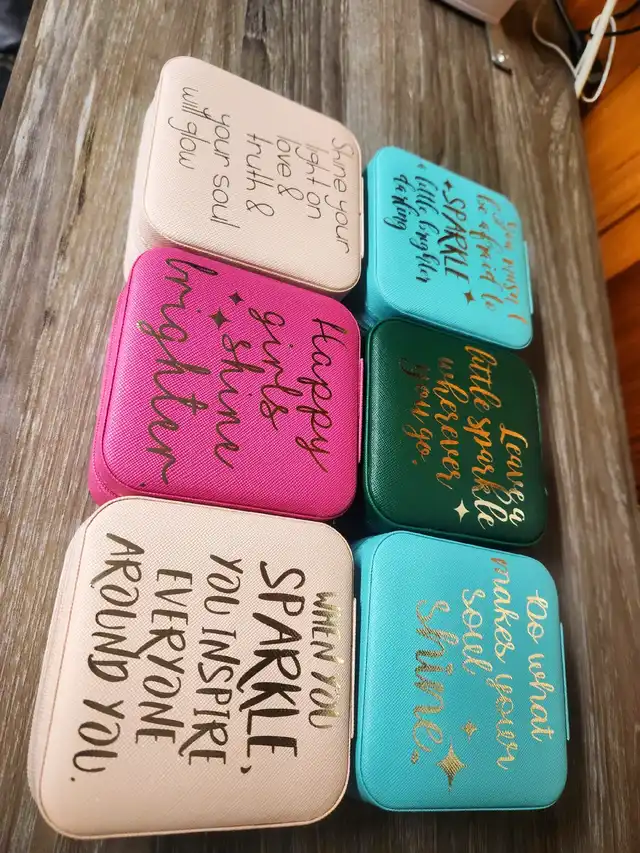 Shine your
light on
love &
truth &
your soul
will glow
You
be afraid to
SPARKLE
a little brighter
darling
Happy
girls
shine
brighter.
Leave a
little sparkle
wherever
you go.
WHEN YOU
SPARKLE,
YOU INSPIRE
EVERYONE
AROUND YOU.
Do what
makes your
soul
shine.